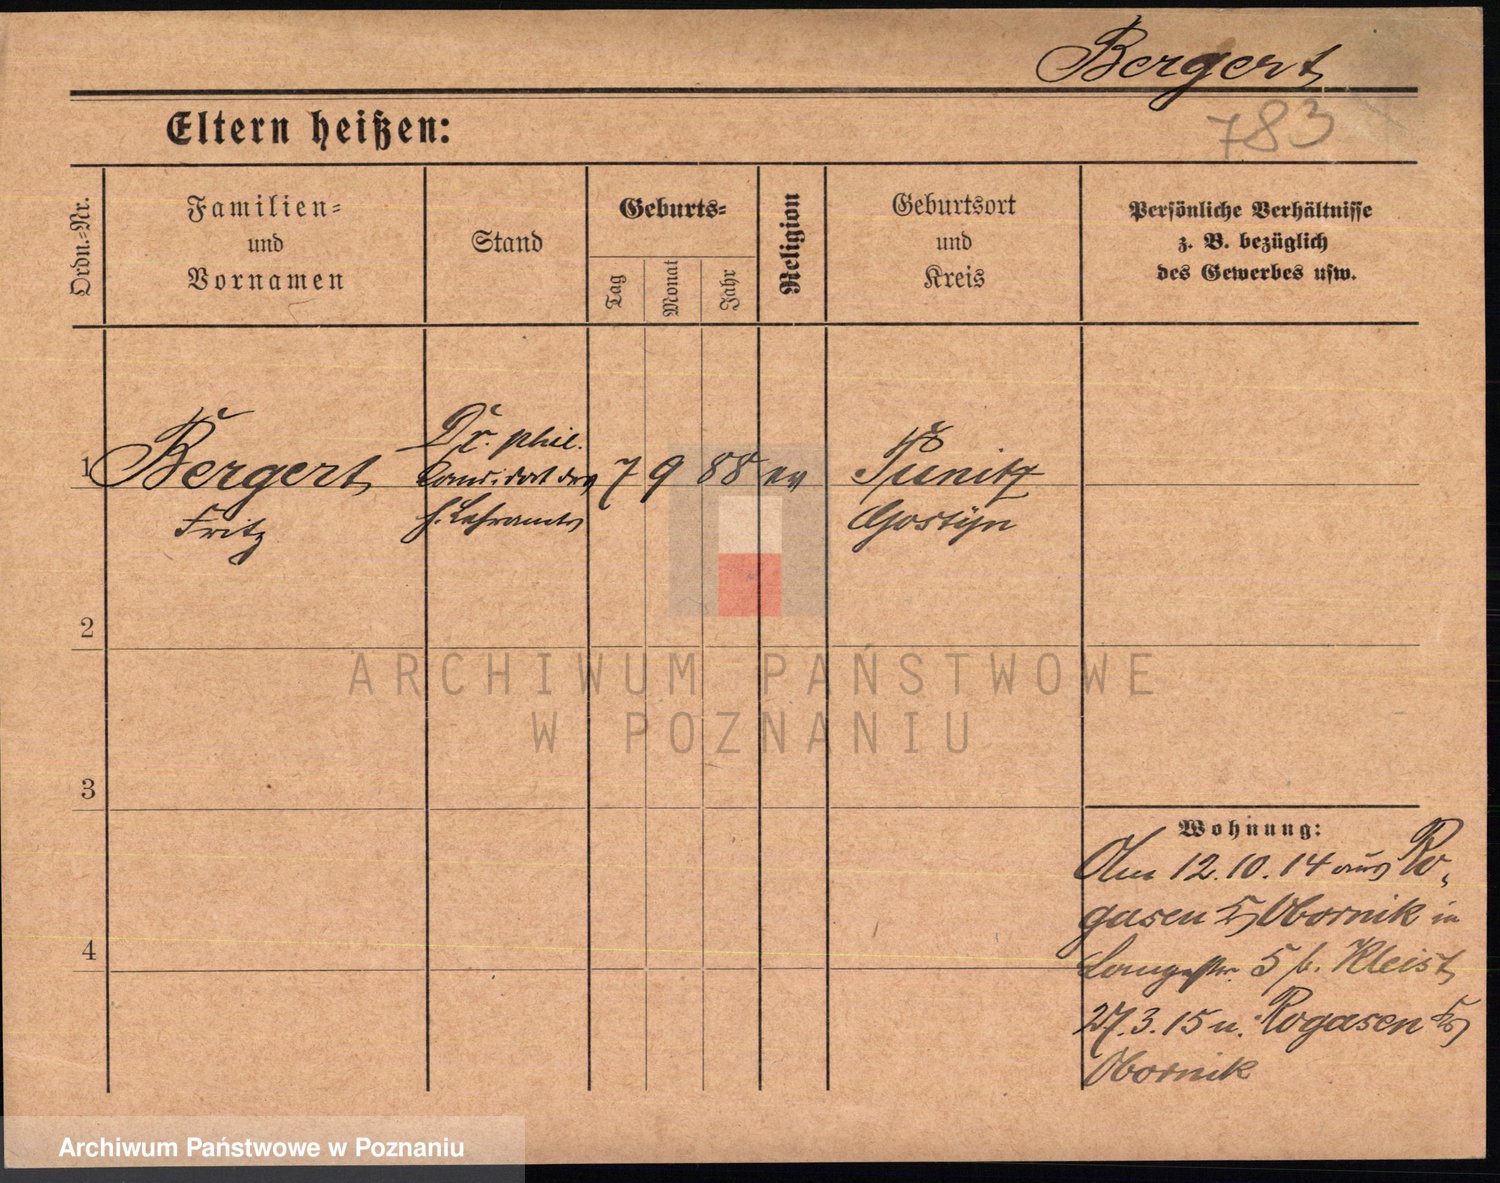 Bergert
783
Eltern heißen:
Ordn.-Nr.
Familien-
und
Vornamen
Stand
Geburts-
Tag
Monat
Jahr
Religion
Geburtsort
und
Kreis
Persönliche Verhältnisse
z. B. bezüglich
des Gewerbes usw.
1
Bergert
Fritz
Dr. phil.
Candidat des
h. Lehramts
7
9
88
ev
Punitz
Gostyn
2
3
4
Wohnung:
Am 12.10.14 aus Ro-
gasen Kr Obornik in
Langestr. 5 b. Kleist
27.3.15 n. Rogasen Kr
Obornik
ARCHIWUM PAŃSTWOWE
W POZNANIU
Archiwum Państwowe w Poznaniu